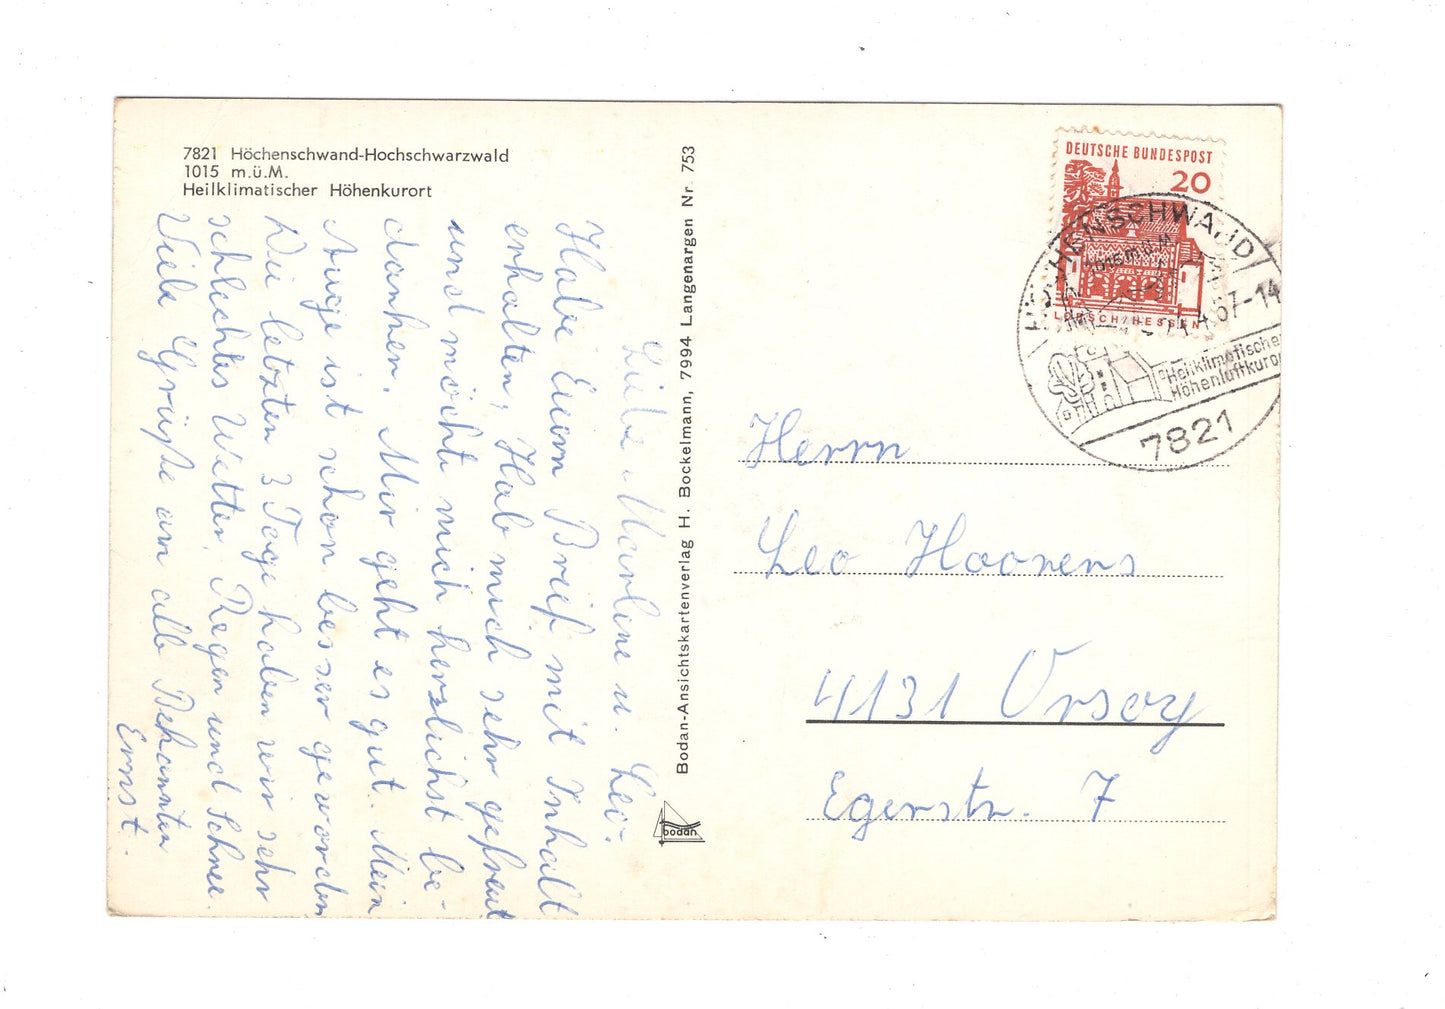 7821 Höchenschwand-Hochschwarzwald
1015 m.ü.M.
Heilklimatischer Höhenkurort
Liebe Marlene u. Leo.
Habe Euern Brief mit Inhalt
erhalten, Hab mich sehr gefreut
und möchte mich herzlichst be-
danken. Mir geht es gut. Mein
Auge ist schon besser geworden
Die letzten 3 Tage haben wir sehr
schlechtes Wetter, Regen und Schnee.
Viele Grüße an alle Bekannten
Ernst.
Bodan-Ansichtskartenverlag H. Bockelmann, 7994 Langenargen Nr. 753
bodan
DEUTSCHE BUNDESPOST
20
LORSCH/HESSEN
HÖCHENSCHWAND
1015 m ü M
4.67-14
Heilklimatischer
Höhenluftkuror
7821
Herrn
Leo Hoorens
4131 Orsoy
Egerstr. 7